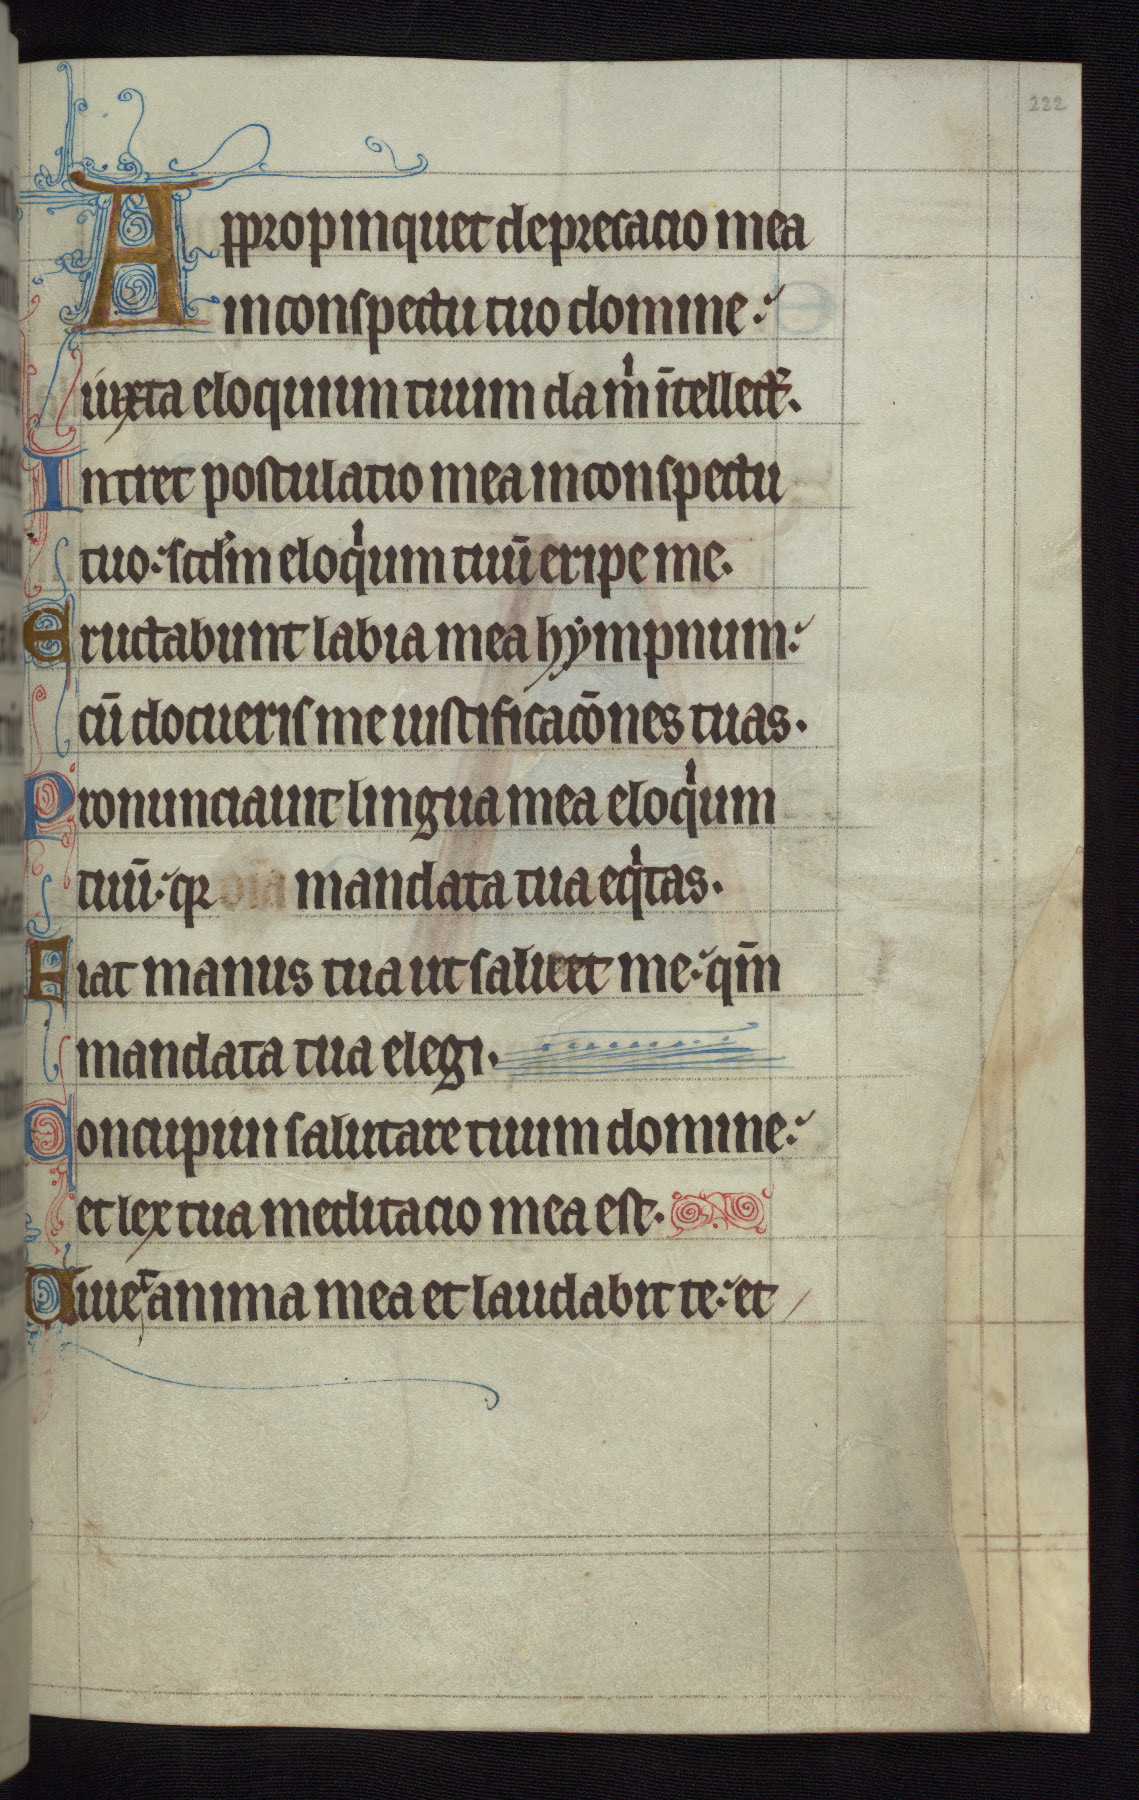 222
Appropinquet deprecacio mea
in conspectu tuo domine:
iuxta eloquium tuum da mⁱ ītellectū.
Intret postulatio mea in conspectu
tuo: scd̄m eloqⁱum tuū eripe me.
Eructabunt labia mea hẏmpnum:
cū docueris me iustificacōnes tuas.
Pronunciauit lingua mea eloqⁱum
tuū: qꝛ oīa mandata tua eqⁱtas.
Fiat manus tua ut saluet me: qm̄
mandata tua elegi.
Concupiui salutare tuum domine:
et lex tua meditacio mea est.
Uiuet anima mea et laudabit te: et